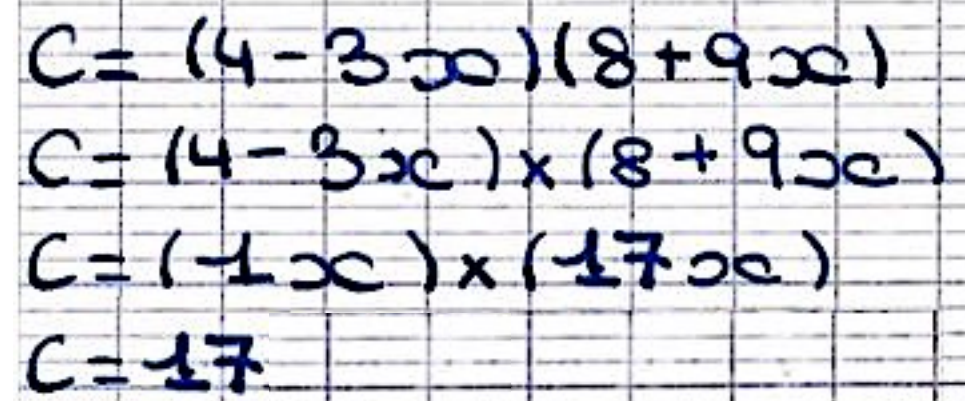 C = (4 - 3x)(8 + 9x)
C = (4 - 3x) × (8 + 9x)
C = (1x) × (17x)
C = 17